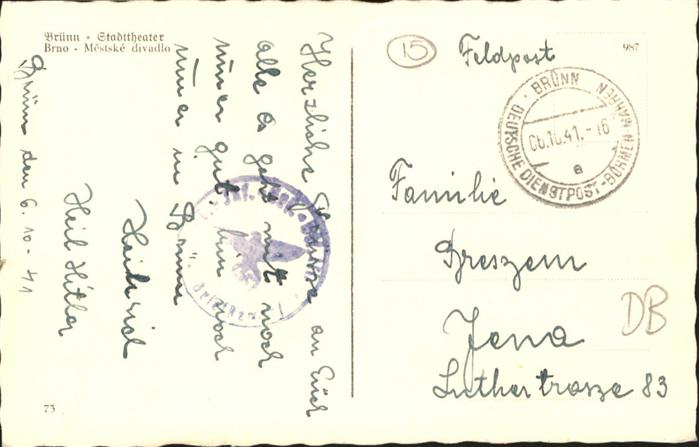 Brünn - Stadttheater
Brno - Městské divadlo
Herzliche Grüsse an Euch
alle es geht mir noch
immer gut. bin noch
immer in Brünn
Heinrich
Heil Hitler
Brünn den 6.10-41
73
15
Feldpost
987
BRÜNN MÄHREN
06.10.41.-16
a
DEUTSCHE DIENSTPOST-BÖHMEN
Familie
Breszem
Jena
Luthertrasze 83
DB